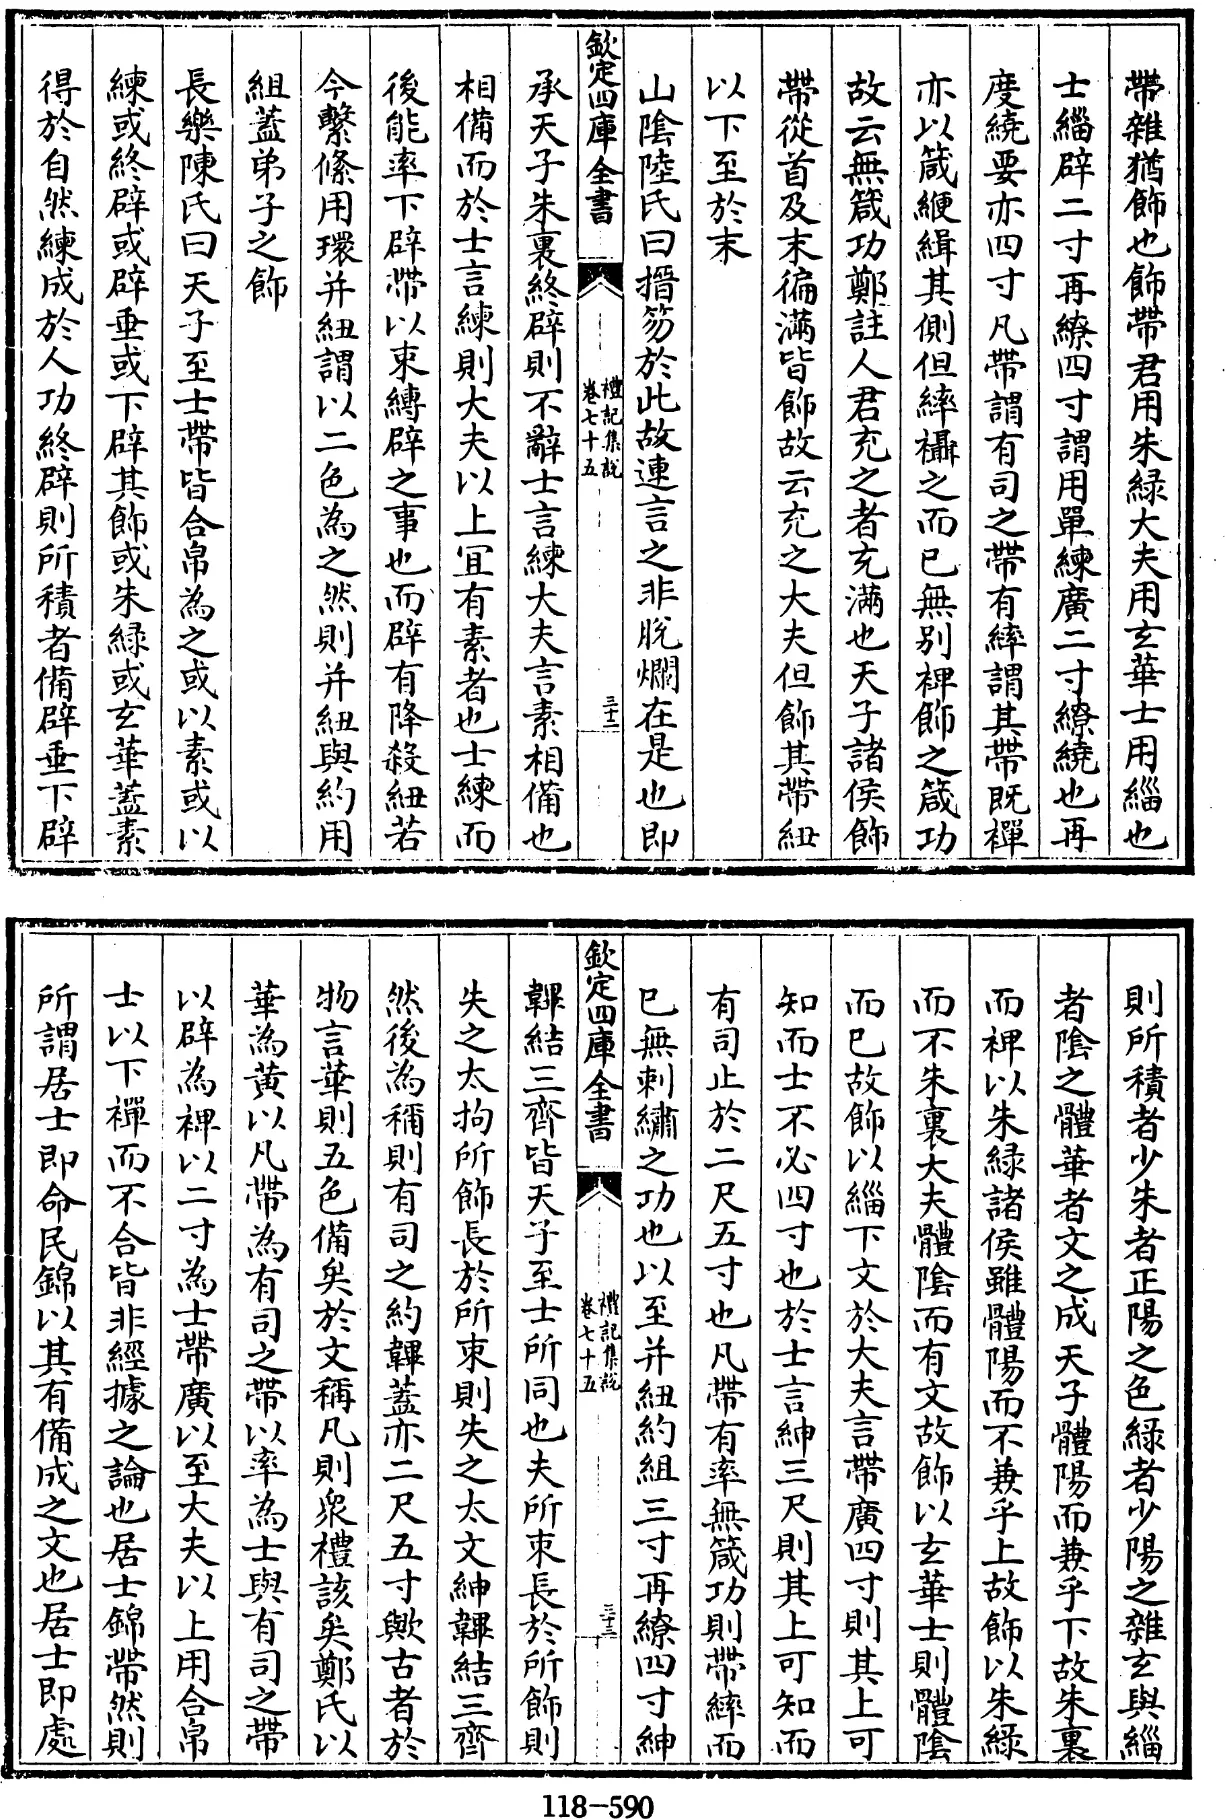 帶雜猶飾也飾帶君用朱緑大夫用玄華士用緇也
士緇辟二寸再繚四寸謂用單練廣二寸繚繞也再
度繞要亦四寸凡帶謂有司之帶有繂謂其帶既襌
亦以箴緶緝其側但繂襵之而已無別裨飾之箴功
故云無箴功鄭註人君充之者充滿也天子諸侯飾
帶從首及末徧滿皆飾故云充之大夫但飾其帶紐
以下至於末
山陰陸氏曰搢笏於此故連言之非脫爛在是也即
欽定四庫全書
禮記集說
卷七十五
三十二
承天子朱裏終辟則不辭士言練大夫言素相備也
相備而於士言練則大夫以上宜有素者也士練而
後能率下辟帶以束縛辟之事也而辟有降殺紐若
今繫絛用環并紐謂以二色為之然則并紐與約用
組蓋弟子之飾
長樂陳氏曰天子至士帶皆合帛為之或以素或以
練或終辟或辟垂或下辟其飾或朱緑或玄華蓋素
得於自然練成於人功終辟則所積者備辟垂下辟
則所積者少朱者正陽之色緑者少陽之雜玄與緇
者陰之體華者文之成天子體陽而兼乎下故朱裏
而裨以朱緑諸侯雖體陽而不兼乎上故飾以朱緑
而不朱裏大夫體陰而有文故飾以玄華士則體陰
而已故飾以緇下文於大夫言帶廣四寸則其上可
知而士不必四寸也於士言紳三尺則其上可知而
有司止於二尺五寸也凡帶有率無箴功則帶繂而
已無刺繡之功也以至并紐約組三寸再繚四寸紳
欽定四庫全書
禮記集說
卷七十五
三十三
韠結三齊皆天子至士所同也夫所束長於所飾則
失之太拘所飾長於所束則失之太文紳韠結三齊
然後為稱則有司之約韠蓋亦二尺五寸歟古者於
物言華則五色備矣於文稱凡則衆禮該矣鄭氏以
華為黄以凡帶為有司之帶以率為士與有司之帶
以辟為裨以二寸為士帶廣以至大夫以上用合帛
士以下襌而不合皆非經據之論也居士錦帶然則
所謂居士即命民錦以其有備成之文也居士即處
118-590